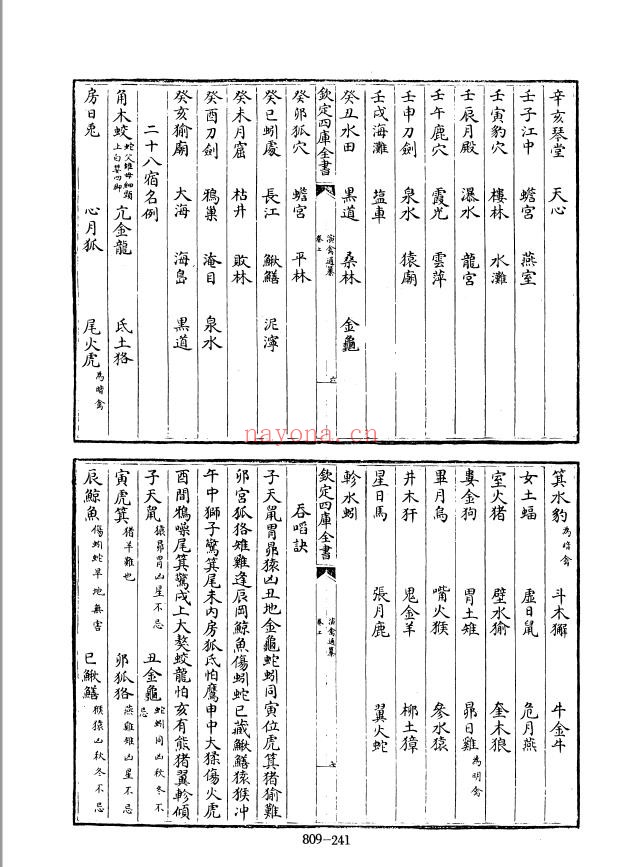 辛亥琴堂 天心
壬子江中 蟾宮 燕室
壬寅豹穴 樓林 水灘
壬辰月殿 瀑水 龍宮
壬午鹿穴 霞光 雲萍
壬申刀劍 泉水 猿廟
壬戌海灘 塩車
癸丑水田 黑道 桑林 金龜
欽定四庫全書 演禽通纂 卷上 六
癸卯狐穴 蟾宮 平林
癸巳蚓處 長江 鰍鱔 泥濘
癸未月窟 枯井 敗林
癸酉刀劍 鴉巢 淹目 泉水
癸亥㺄廟 大海 海島 黑道
二十八宿名例
角木蛟 亢金龍 氐土狢
房日兎 心月狐 尾火虎為暗禽
箕水豹為暗禽 斗木獬 牛金牛
女土蝠 虛日鼠 危月燕
室火猪 壁水㺄 奎木狼
婁金狗 胃土雉 昴日雞為明禽
畢月烏 嘴火猴 參水猿
井木犴 鬼金羊 柳土獐
星日馬 張月鹿 翼火蛇
軫水蚓
欽定四庫全書 演禽通纂 卷上 七
吞啗訣
子天鼠胃昴猿凶丑地金龜蛇蚓同寅位虎箕猪㺄難
卯宮狐狢雉雞逢辰岡鯨魚傷蚓蛇巳藏鰍鱔猿猴冲
午中獅子驚箕尾未內房狐氐怕鷹申中大猱傷火虎
酉間鴉噪尾箕驚戌上大獒蛟龍怕亥有熊猪翼軫傾
子天鼠猿昴胃凶星不忌 丑金龜蛇蚓同凶秋冬不忌
寅虎箕猪羊難也 卯狐狢燕雞雉凶星不忌
辰鯨魚傷蚓蛇旱地無害 巳鰍鱔猴猿凶秋冬不忌
809-241
nayona.cn